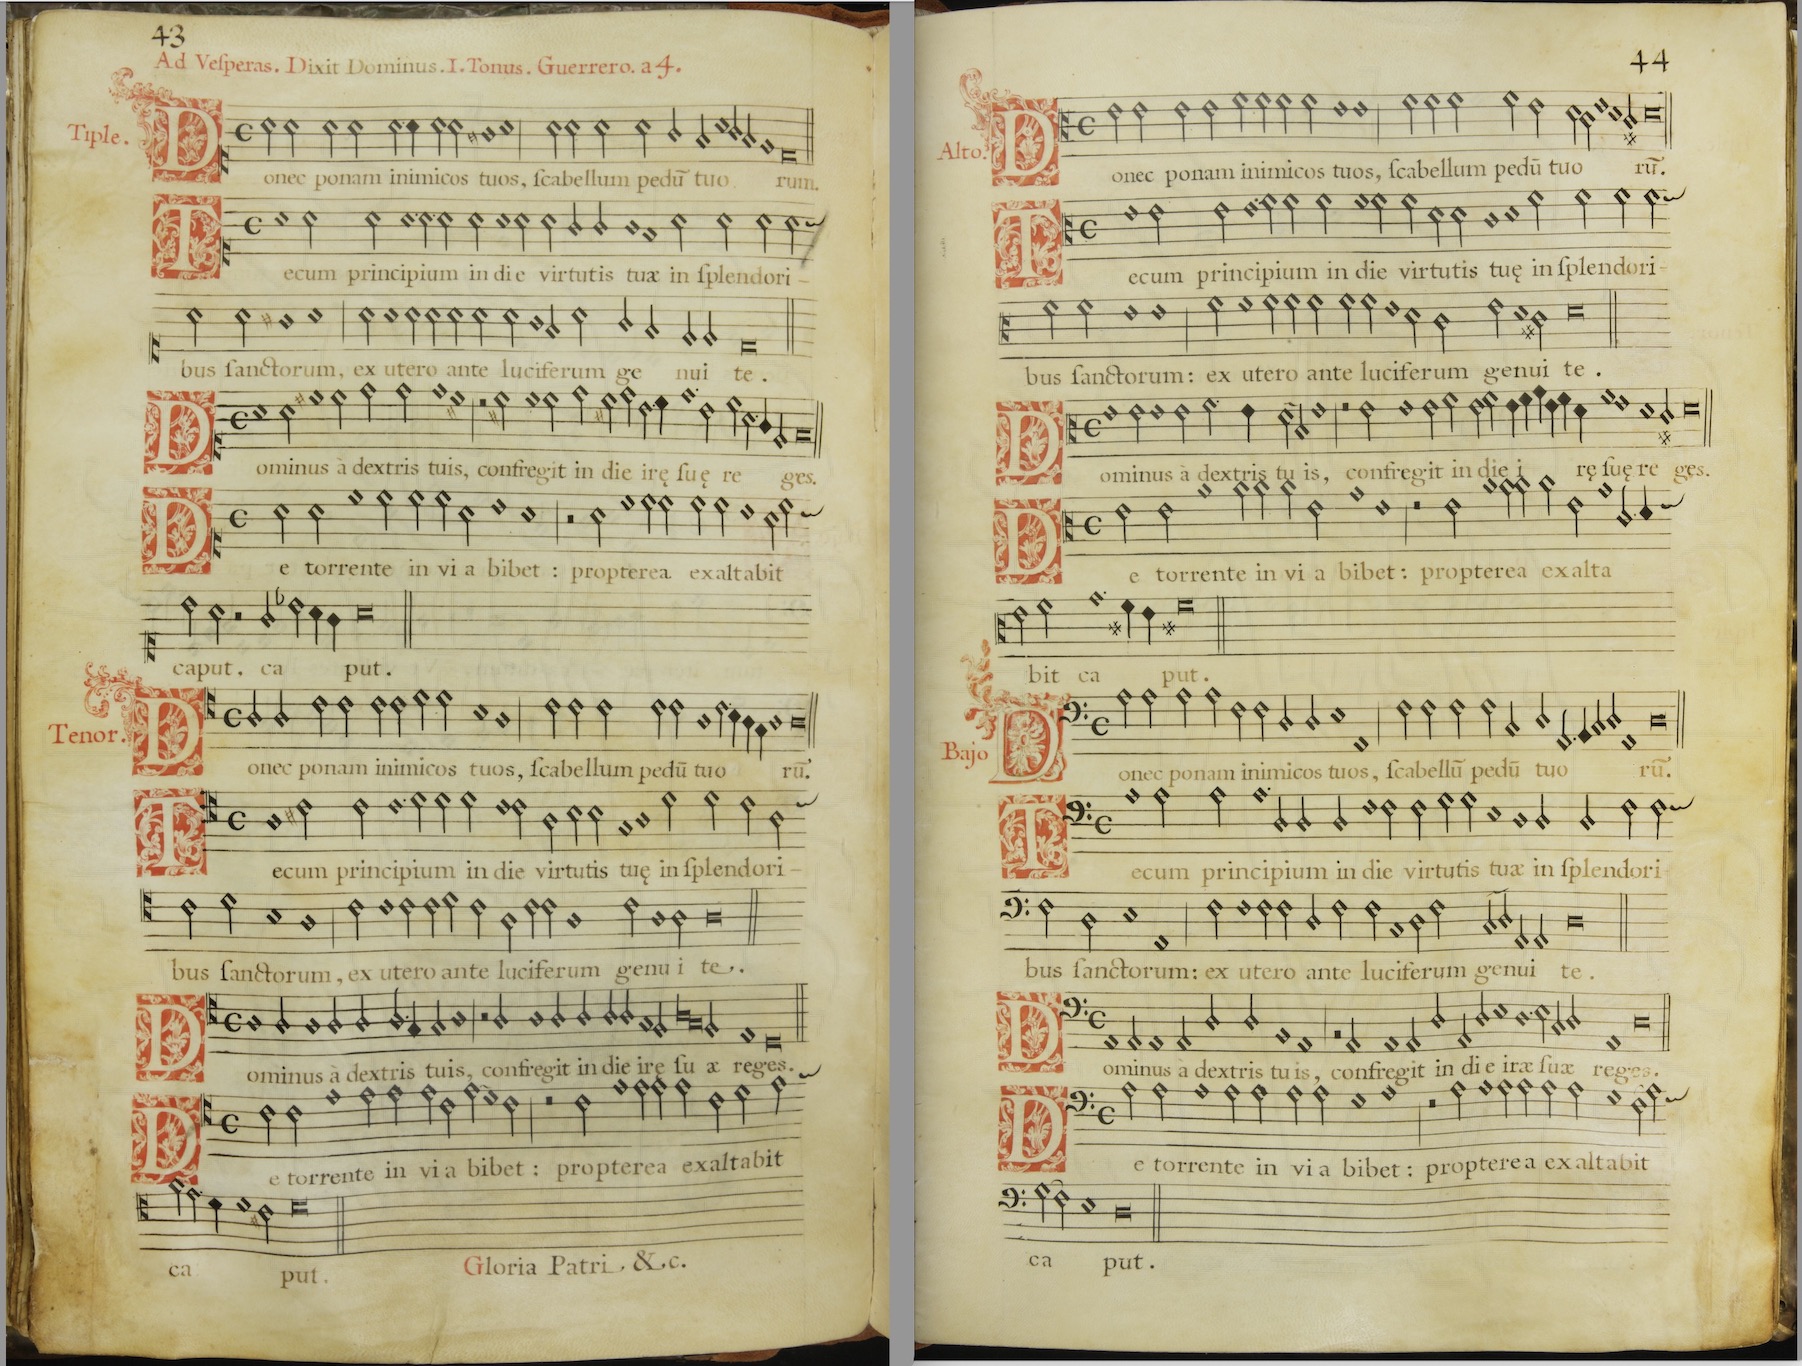 43
Ad Veſperas. Dixit Dominus. I. Tonus. Guerrero. a 4.
Tiple.
Donec ponam inimicos tuos, ſcabellum pedū tuo rum.
Tecum principium in die virtutis tuæ in ſplendori-
bus ſanctorum, ex utero ante luciferum ge nui te.
Dominus à dextris tuis, confregit in die irę ſuę re ges.
De torrente in vi a bibet: propterea exaltabit
caput. ca put.
Tenor.
Donec ponam inimicos tuos, ſcabellum pedū tuo rū.
Tecum principium in die virtutis tuę in ſplendori-
bus ſanctorum, ex utero ante luciferum genu i te.
Dominus à dextris tuis, confregit in die irę ſu æ reges.
De torrente in vi a bibet: propterea exaltabit
ca put.
Gloria Patri, &c.
44
Alto.
Donec ponam inimicos tuos, ſcabellum pedū tuo rū.
Tecum principium in die virtutis tuę in ſplendori-
bus ſanctorum: ex utero ante luciferum genui te.
Dominus à dextris tu is, confregit in die i rę ſuę re ges.
De torrente in vi a bibet: propterea exalta
bit ca put.
Bajo
Donec ponam inimicos tuos, ſcabellū pedū tuo rū.
Tecum principium in die virtutis tuæ in ſplendori
bus ſanctorum: ex utero ante luciferum genui te.
Dominus à dextris tu is, confregit in di e iræ ſuæ reges.
De torrente in vi a bibet: propterea exaltabit
ca put.